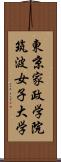 東京家政学院
筑波女子大学